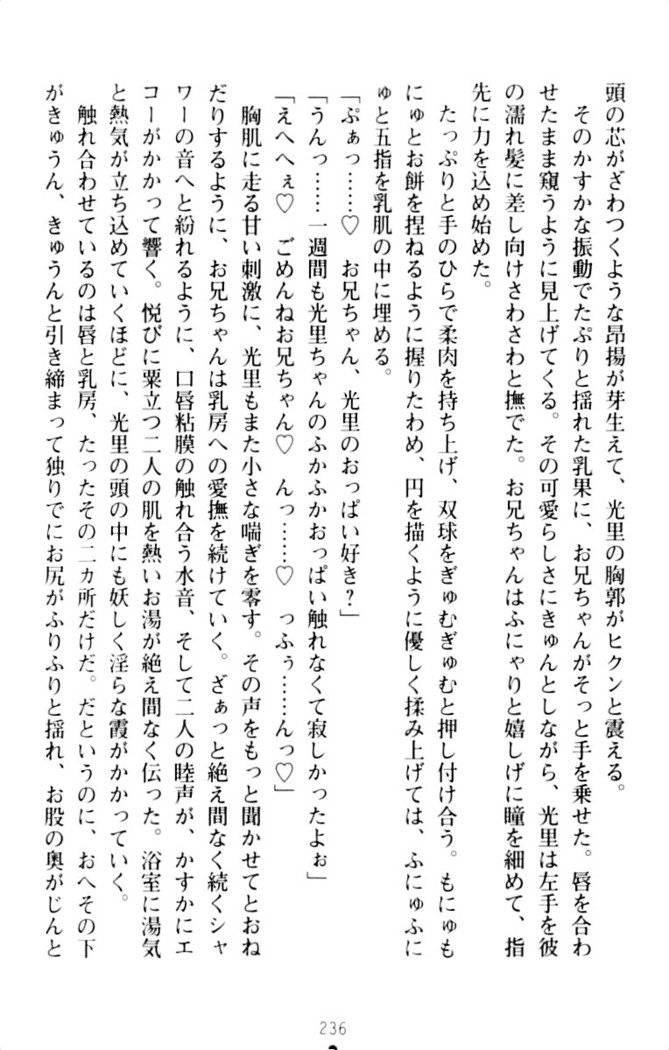 頭の芯がざわつくような昂揚が芽生えて、光里の胸郭がヒクンと震える。
そのかすかな振動でたぷりと揺れた乳果に、お兄ちゃんがそっと手を乗せた。唇を合わ
せたまま窺うように見上げてくる。その可愛らしさにきゅんとしながら、光里は左手を彼
の濡れ髪に差し向けさわさわと撫でた。お兄ちゃんはふにゃりと嬉しげに瞳を細めて、指
先に力を込め始めた。
たっぷりと手のひらで柔肉を持ち上げ、双球をぎゅむぎゅむと押し付け合う。もにゅも
にゅとお餅を捏ねるように握りたわめ、円を描くように優しく揉み上げては、ふにゅふに
ゅと五指を乳肌の中に埋める。
「ぷぁっ……♡　お兄ちゃん、光里のおっぱい好き？」
「うんっ……一週間も光里ちゃんのふかふかおっぱい触れなくて寂しかったよぉ」
「えへへぇ♡　ごめんねお兄ちゃん♡　んっ……♡　っふぅ……んっ♡」
胸肌に走る甘い刺激に、光里もまた小さな喘ぎを零す。その声をもっと聞かせてとおね
だりするように、お兄ちゃんは乳房への愛撫を続けていく。ざぁっと絶え間なく続くシャ
ワーの音へと紛れるように、口唇粘膜の触れ合う水音、そして二人の睦声が、かすかにエ
コーがかかって響く。悦びに粟立つ二人の肌を熱いお湯が絶え間なく伝った。浴室に湯気
と熱気が立ち込めていくほどに、光里の頭の中にも妖しく淫らな霞がかかっていく。
触れ合わせているのは唇と乳房、たったその二ヵ所だけだ。だというのに、おへその下
がきゅうん、きゅうんと引き締まって独りでにお尻がふりふりと揺れ、お股の奥がじんと
236